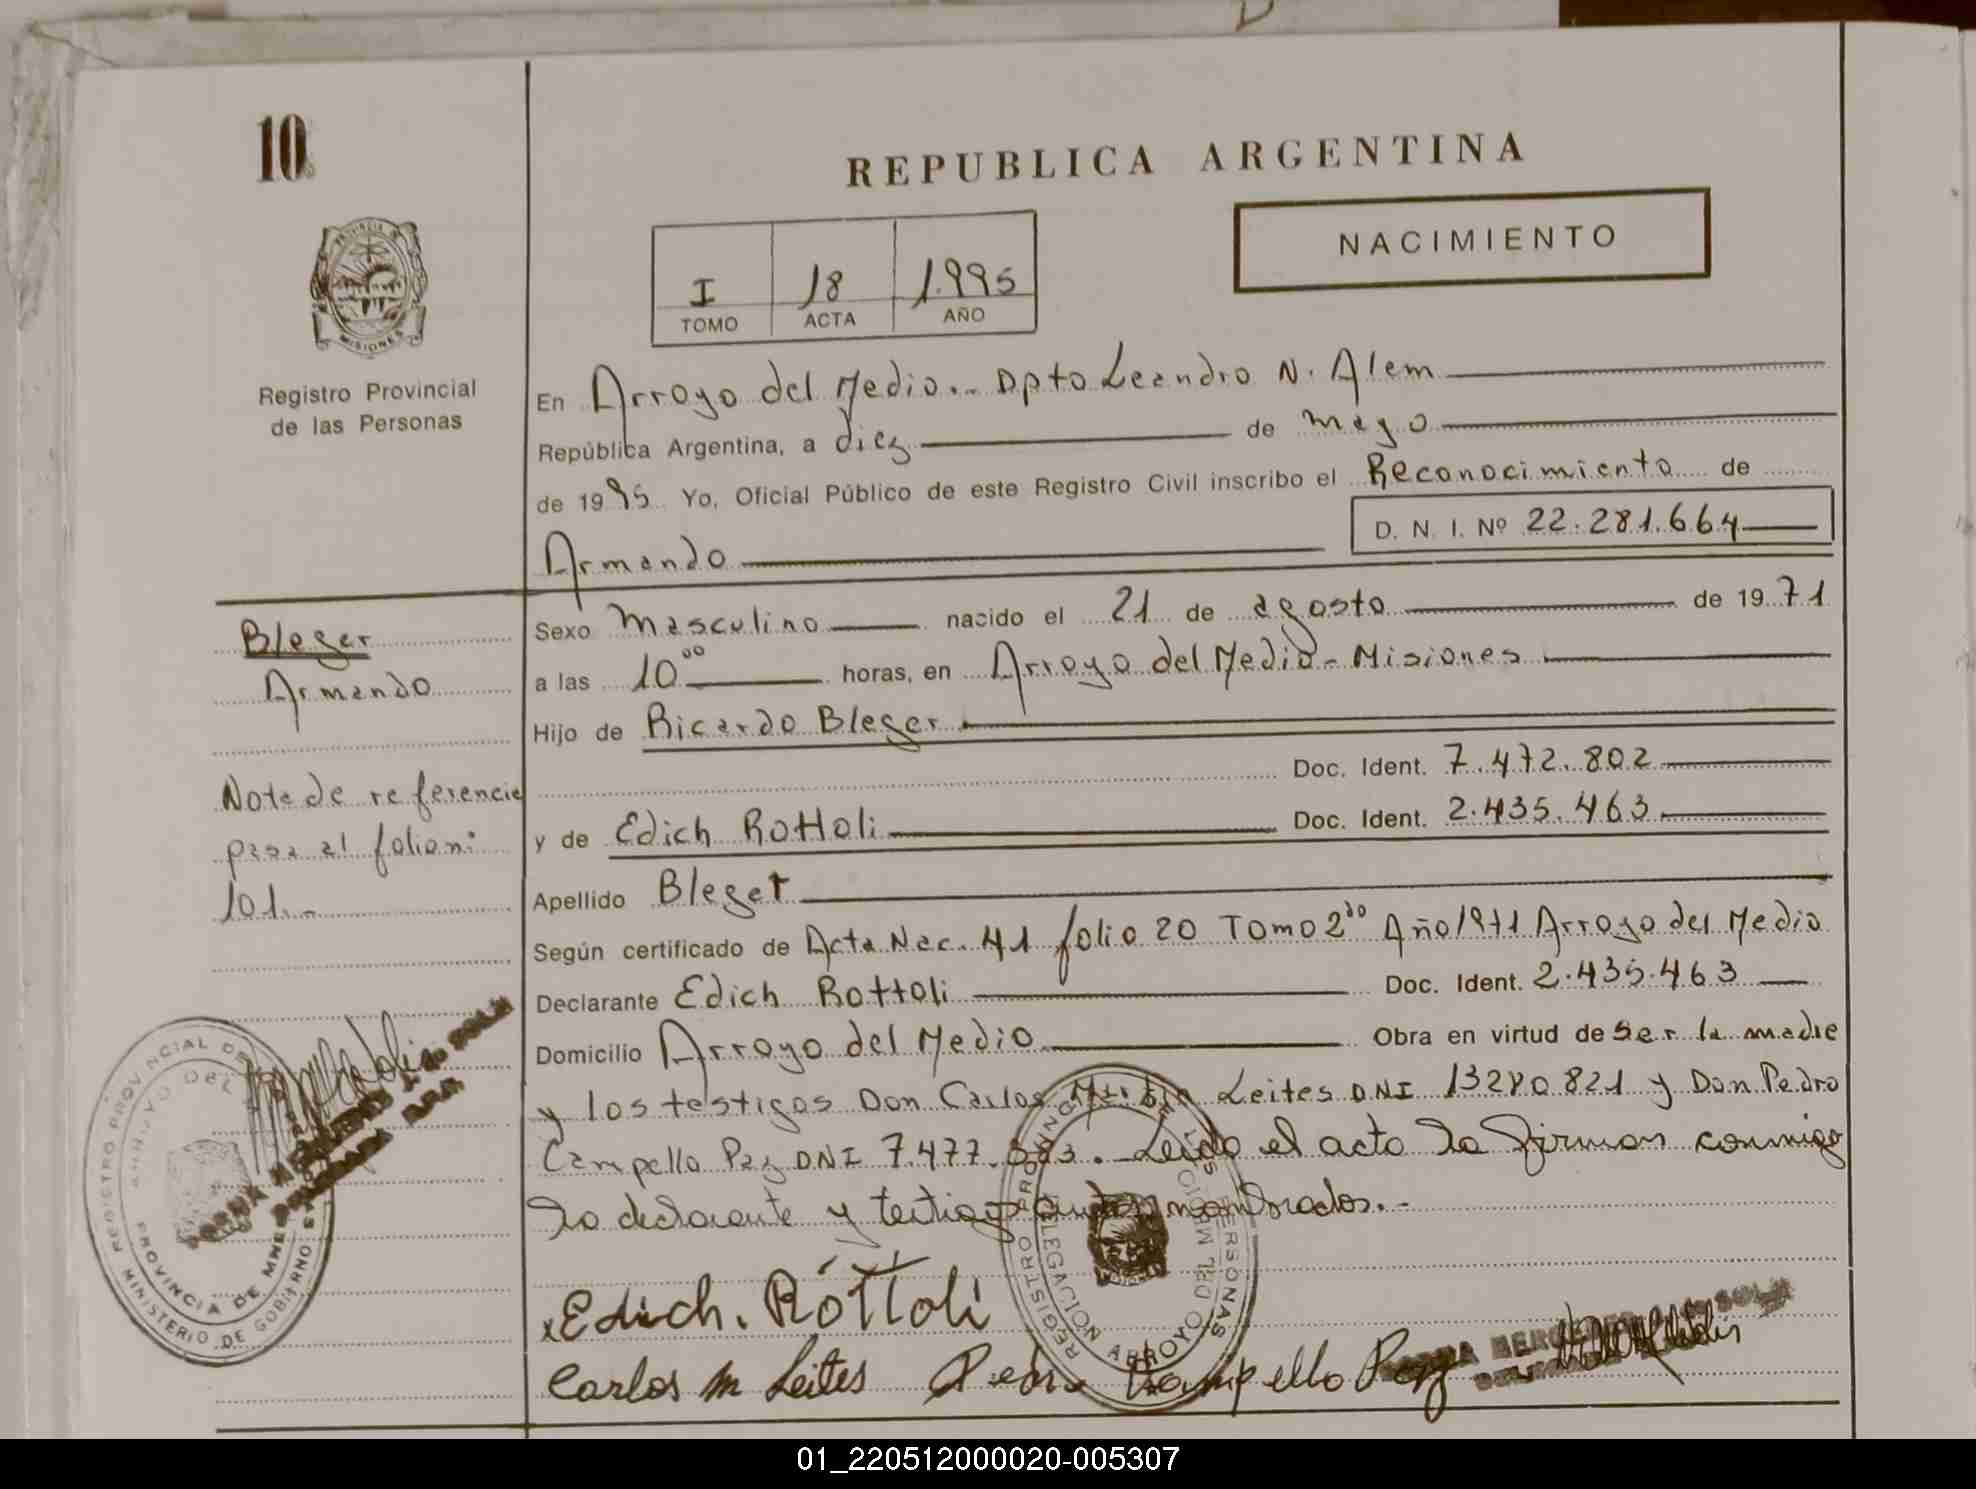 10
REPUBLICA ARGENTINA
NACIMIENTO
I 18 1.995
TOMO ACTA AÑO
PROVINCIA DE
MISIONES
Registro Provincial
de las Personas
En Arroyo del Medio.- Dpto Leandro N. Alem
República Argentina, a diez de mayo
de 1995 Yo, Oficial Público de este Registro Civil inscribo el Reconocimiento de
D. N. I. Nº 22.281.664
Armando
Bleger
Armando
Nota de referencia
pasa al folio n:
101.-
Sexo Masculino nacido el 21 de agosto de 1971
a las 10 00 horas, en Arroyo del Medio - Misiones
Hijo de Ricardo Bleger
Doc. Ident. 7.472.802
y de Edich Rottoli Doc. Ident. 2.435.463
Apellido Bleger
Según certificado de Acta Nac. 41 folio 20 Tomo 2do Año 1971 Arroyo del Medio
Declarante Edich Rottoli Doc. Ident. 2.435.463
Domicilio Arroyo del Medio Obra en virtud de Ser la madre
y los testigos Don Carlos Martin Leites DNI 13280.821 y Don Pedro
Campello Paz DNI 7.477. Leido el acto la firman conmigo
la declarante y testigos nombrados.-
Edich. Rottoli
Carlos M Leites Pedro Campello Paz
REGISTRO PROVINCIAL DE
MINISTERIO DE GOBIERNO
ARCHIVO DEL
PROVINCIA DE MNES
REGISTRO PROVINCIAL DE LAS PERSONAS
DELEGACION ARROYO DEL MEDIO
01_220512000020-005307